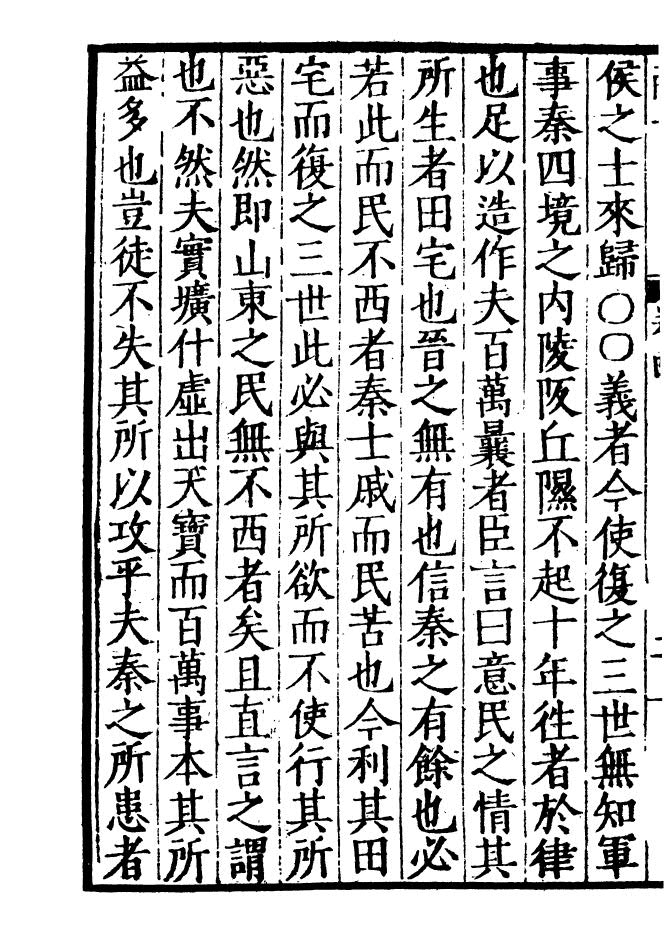 侯之士來歸〇〇義者今使復之三世無知軍
事秦四境之内陵阪丘隰不起十年徃者於律
也足以造作夫百萬曩者臣言曰意民之情其
所生者田宅也晉之無有也信秦之有餘也必
若此而民不西者秦士戚而民苦也今利其田
宅而復之三世此必與其所欲而不使行其所
惡也然即山東之民無不西者矣且直言之謂
也不然夫實壙什虛出天寶而百萬事本其所
益多也豈徒不失其所以攻乎夫秦之所患者